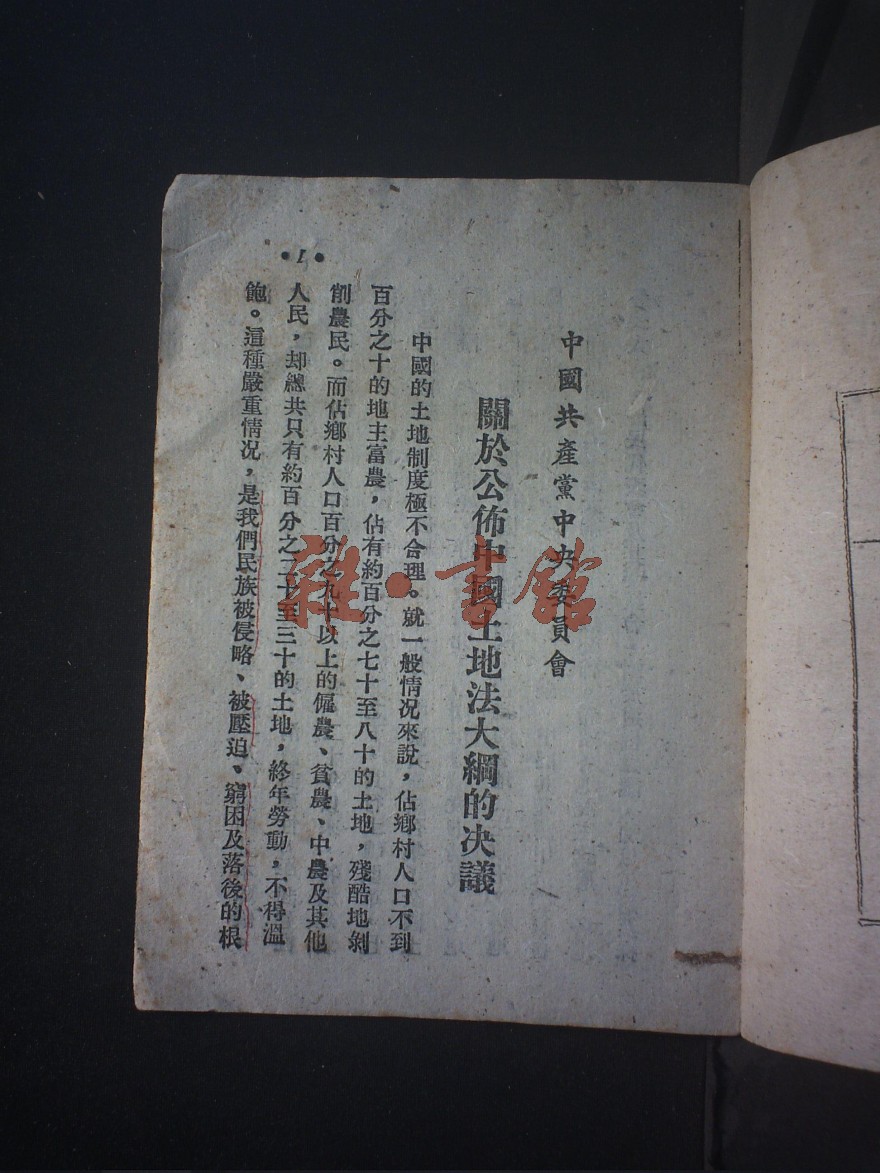 中國共產黨中央委員會
關於公佈中國土地法大綱的决議
中國的土地制度極不合理。就一般情况來說，佔鄉村人口不到
百分之十的地主富農，佔有約百分之七十至八十的土地，殘酷地剝
削農民。而佔鄉村人口百分之九十以上的僱農、貧農、中農及其他
人民，却總共只有約百分之二十至三十的土地，終年勞動，不得溫
飽。這種嚴重情况，是我們民族被侵略、被壓迫、窮困及落後的根
•1•
雜·書館